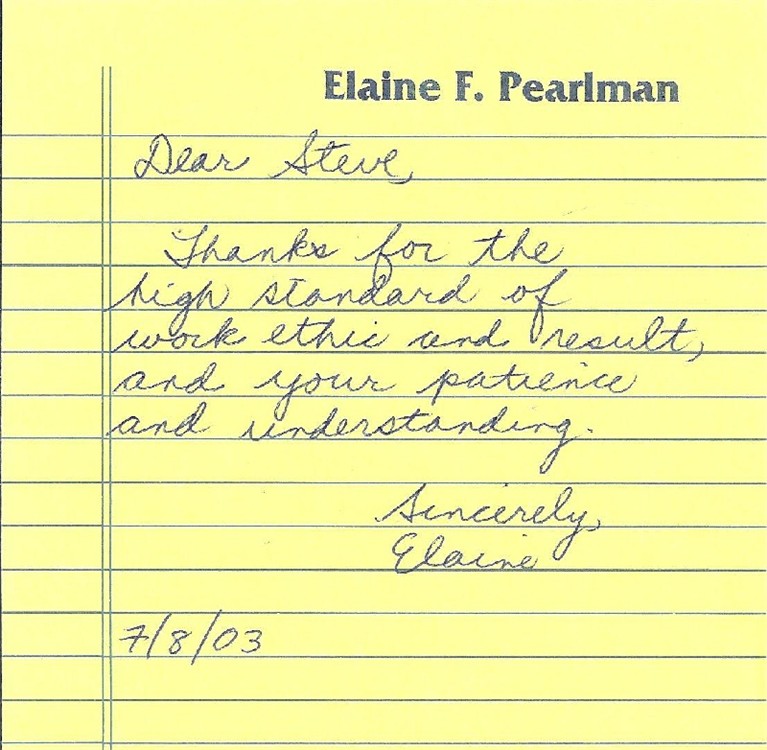 Elaine F. Pearlman
Dear Steve,
Thanks for the
high standard of
work ethic and result,
and your patience
and understanding.
Sincerely,
Elaine
7/8/03